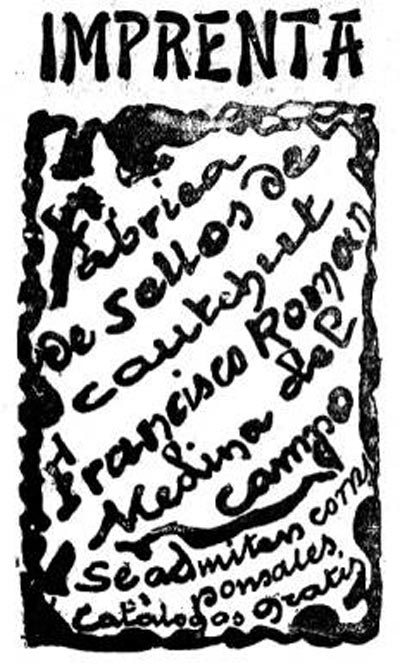 IMPRENTA
Fábrica
de Sellos de
cautchut
Francisco Roman
Medina del
campo
Se admiten corres
ponsales.
Catálogos gratis